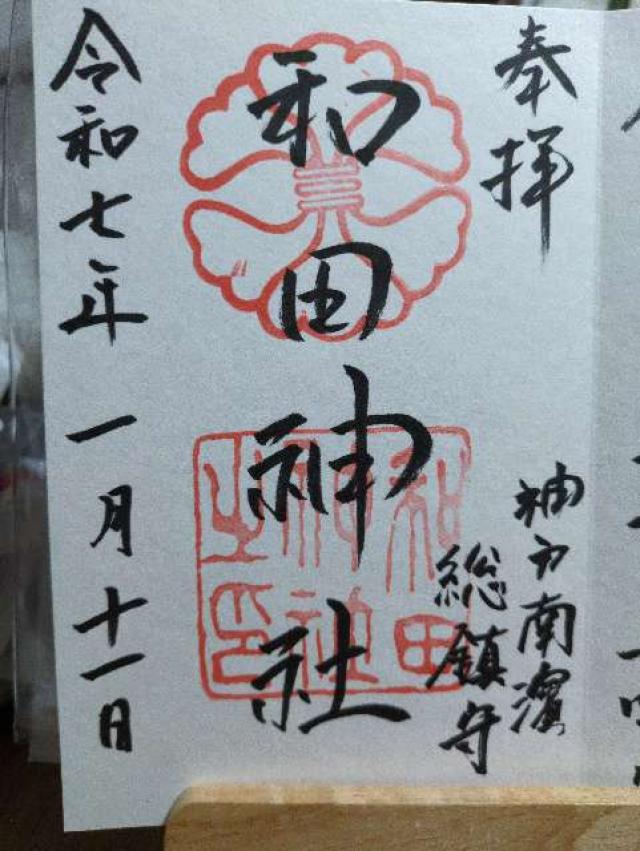 奉拝
神戸南濱
総鎮守
和田神社
和田
神社
之印
令和七年 一月十一日